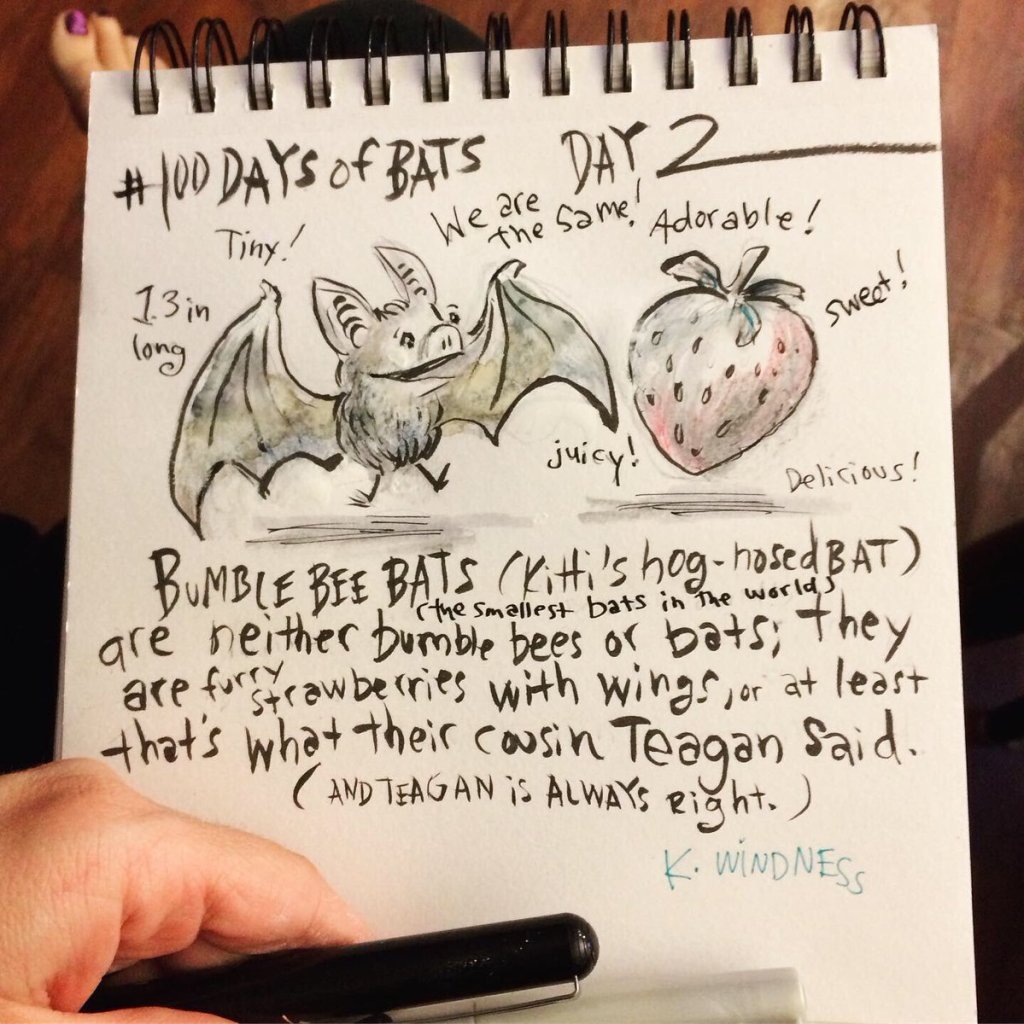 #100 DAYS of BATS DAY 2
Tiny!
We are
the same!
Adorable!
1.3 in
long
sweet!
juicy!
Delicious!
BUMBLE BEE BATS (Kitti's hog-nosed BAT)
(the smallest bats in the world)
are neither bumble bees or bats; they
are furry strawberries with wings, or at least
that's what their cousin Teagan said.
(AND TEAGAN is ALWAYS Right.)
K. WINDNESS